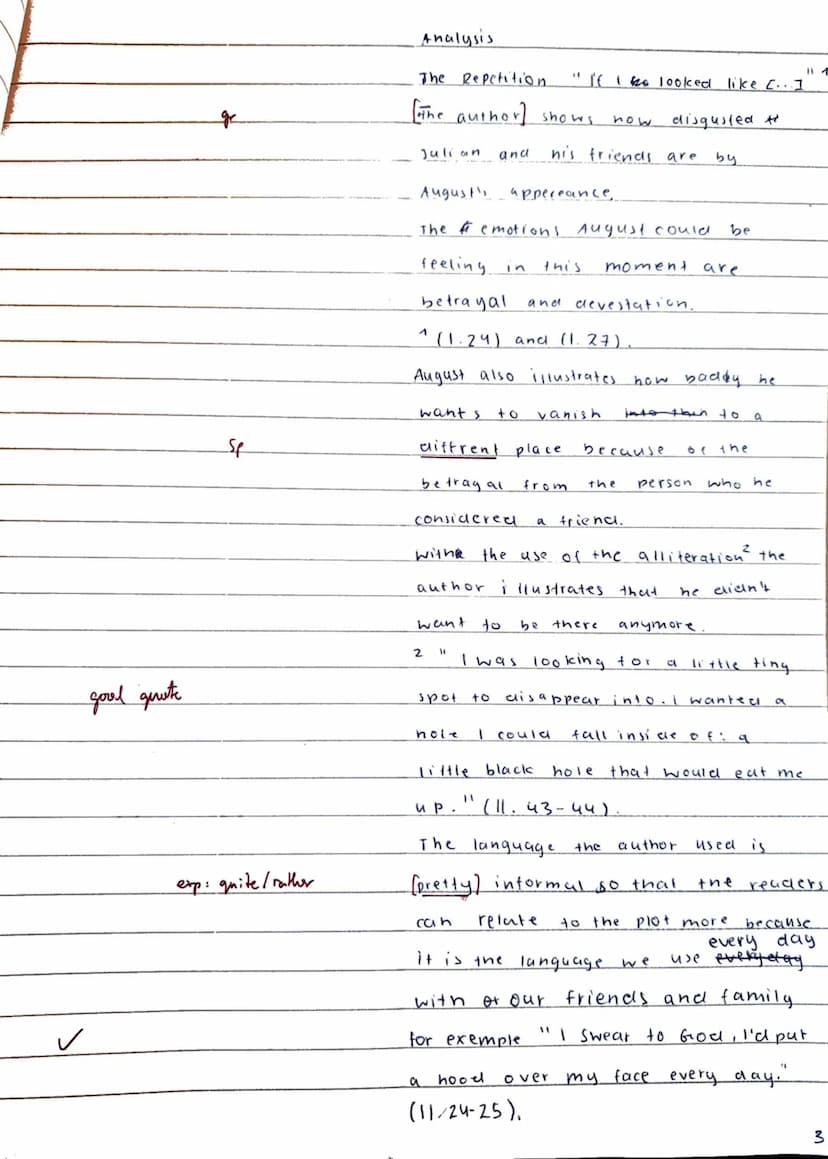 Analysis
The Repetition "If I looked like [...]" 1
gr [The author] shows how disgusted
Julian and his friends are by
August's appereance.
The emotions August could be
feeling in this moment are
betrayal and devestation.
1 (l.24) and (l.27).
August also illustrates how badly he
wants to vanish into then to a
Sp diffrent place because of the
betrayal from the person who he
considered a friend.
With the use of the alliteration² the
author illustrates that he didn't
want to be there anymore.
2 "I was looking for a little tiny
good quote spot to disappear into. I wanted a
hole I could fall inside of: a
little black hole that would eat me
up." (ll. 43-44).
The language the author used is
exp: quite/rather [pretty] informal so that the readers
can relate to the plot more because
every day
it is the language we use everyday
with our friends and family
✓ for exemple "I swear to God, I'd put
a hood over my face every day."
(ll/24-25).
3